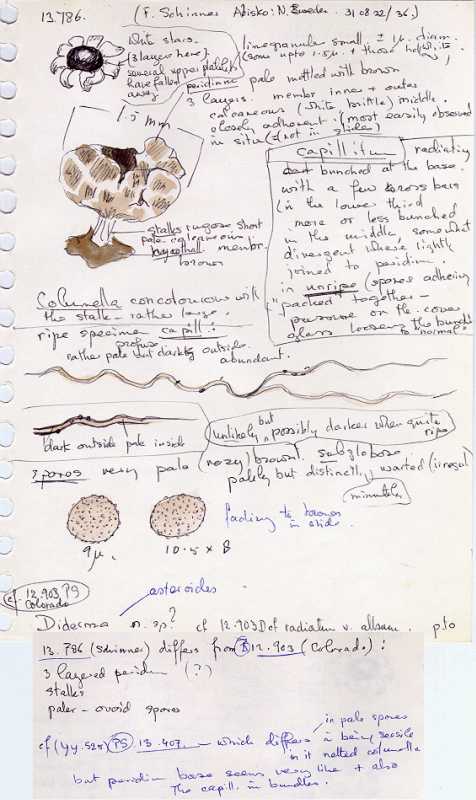 13.786. (F. Schinner Abisko: N. Sweden. 31 08 22/36.)
White stars.
(3 layers here)
several upper platelets
have fallen
away
peridium
lime granules small, ± 1μ. diam.
(some upto 1.5μ. + those
pale mottled with brown.
3 layers. membr inner + outer
calcareous (white brittle) middle.
closely adherent (most easily observed
in situ + not in slide)
1.5 mm
capillitium radiating
bunched at the base.
with a few cross bars
(in the lower third
more or less bunched
in the middle, somewhat
divergent where lightly
joined to peridium.
in unripe (spores adhering
"packed together –
pressure on the cover
glass loosens the bundles
to normal)
stalks rugose short
pale calcareous;
hypothall membr.
brown
Columella concolorous with
the stalk – rather large.
ripe specimen capill:
profuse
rather pale but dark outside.
abundant.
dark outside pale inside
unlikely but possibly darker when quite
ripe
spores very pale (rosy) brown. subglobose
palely but distinctly, warted (irregul
minutely
fading to brown
in slide.
9μ. 10.5 x 8
cf 12.903 PS
Colorado
asteroides.
Diderma n. sp? cf 12.903 D cf radiatum v. album. pto
13.786 (Schinner) differs from 12.903 (Colorado):
3 layered peridium (?)
stalks
paler – ovoid spores
cf (yy. 525) PS 13.407 – which differs in pale spores
in being sessile
in it netted columella
but peridium base seems very like + also
The capill. in bundles.